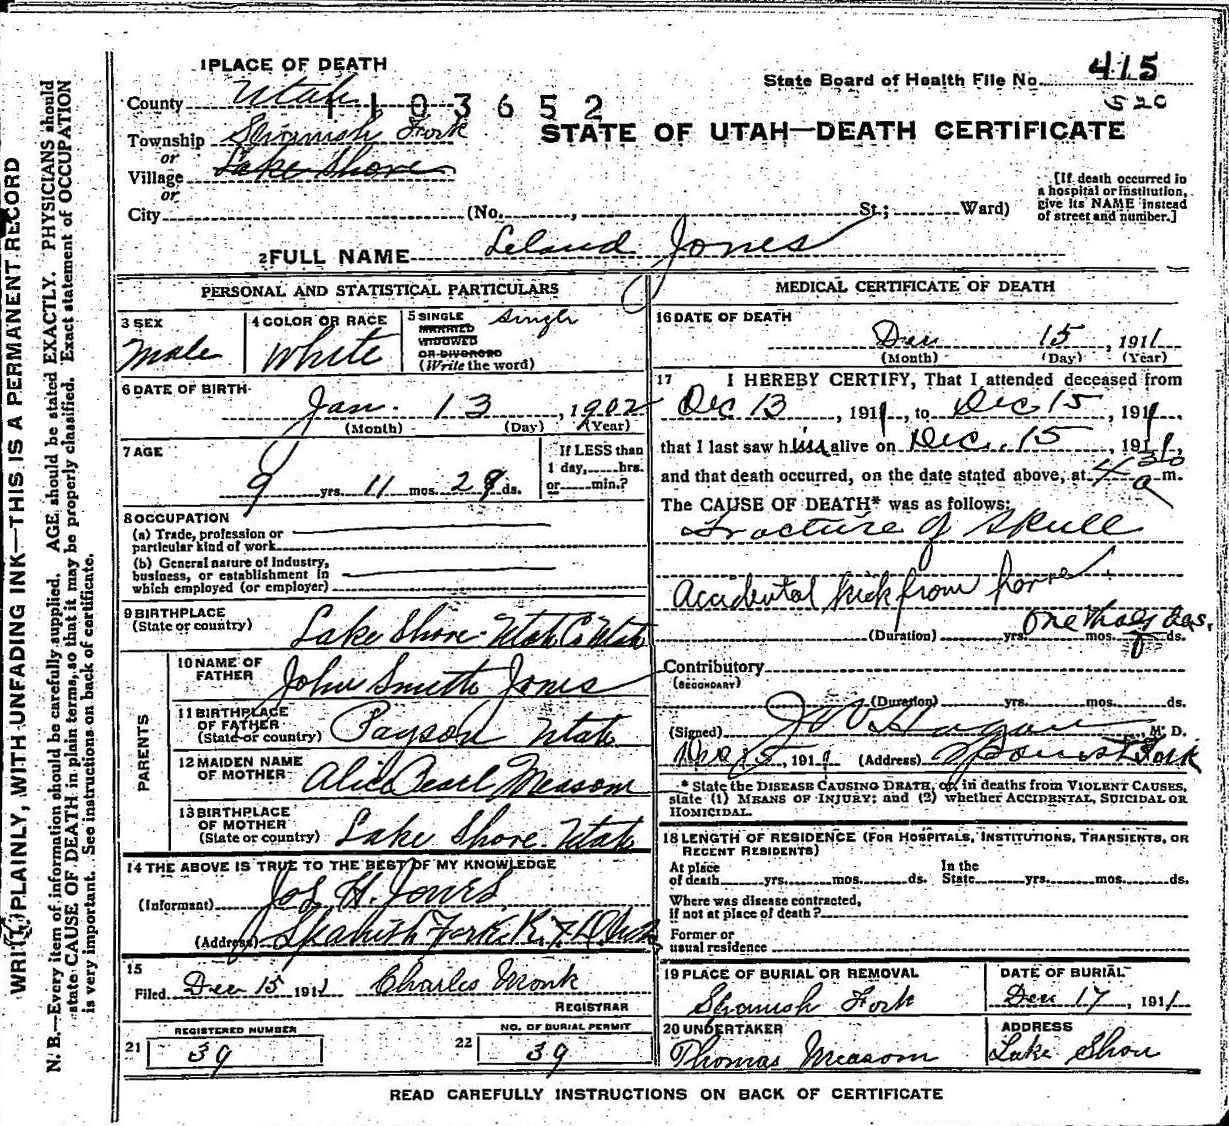 1 PLACE OF DEATH
State Board of Health File No. 415
County Utah
1103652
520
Township Spanish Fork
STATE OF UTAH—DEATH CERTIFICATE
or
Village Lake Shore
or
City (No. , St.; Ward)
[If death occurred in a hospital or institution, give its NAME instead of street and number.]
2 FULL NAME Leland Jones
PERSONAL AND STATISTICAL PARTICULARS
3 SEX
Male
4 COLOR OR RACE
White
5 SINGLE Single
MARRIED
WIDOWED
OR DIVORCED
(Write the word)
6 DATE OF BIRTH
Jan. 13, 1902
(Month) (Day) (Year)
7 AGE
9 yrs. 11 mos. 2 ds.
If LESS than
1 day, hrs.
or min.?
8 OCCUPATION
(a) Trade, profession or
particular kind of work
(b) General nature of industry,
business, or establishment in
which employed (or employer)
9 BIRTHPLACE
(State or country) Lake Shore Utah Co Utah
PARENTS
10 NAME OF
FATHER John Smith Jones
11 BIRTHPLACE
OF FATHER
(State or country) Payson Utah
12 MAIDEN NAME
OF MOTHER Alice Pearl Measom
13 BIRTHPLACE
OF MOTHER
(State or country) Lake Shore Utah
14 THE ABOVE IS TRUE TO THE BEST OF MY KNOWLEDGE
(Informant) Jos H. Jones
(Address) Spanish Fork R.F.D.
15
Filed Dec 15 1911 Charles Monk
REGISTRAR
REGISTERED NUMBER
21 39
NO. OF BURIAL PERMIT
22 39
MEDICAL CERTIFICATE OF DEATH
16 DATE OF DEATH
Dec 15, 1911
(Month) (Day) (Year)
17 I HEREBY CERTIFY, That I attended deceased from
Dec 13, 1911, to Dec 15, 1911,
that I last saw him alive on Dec. 15, 1911,
and that death occurred, on the date stated above, at 4 30 a m.
The CAUSE OF DEATH* was as follows:
Fracture of Skull
Accidental kick from horse
(Duration) yrs. mos. ds.
Contributory
(SECONDARY)
(Duration) yrs. mos. ds.
(Signed) , M. D.
Dec 15, 1911 (Address) Spanish Fork
* State the DISEASE CAUSING DEATH, or, in deaths from VIOLENT CAUSES,
state (1) MEANS OF INJURY; and (2) whether ACCIDENTAL, SUICIDAL OR
HOMICIDAL.
18 LENGTH OF RESIDENCE (FOR HOSPITALS, INSTITUTIONS, TRANSIENTS, OR
RECENT RESIDENTS)
At place
of death yrs. mos. ds.
In the
State yrs. mos. ds.
Where was disease contracted,
if not at place of death?
Former or
usual residence
19 PLACE OF BURIAL OR REMOVAL
Spanish Fork
DATE OF BURIAL
Dec 17, 1911
20 UNDERTAKER
Thomas Measom
ADDRESS
Lake Shore
READ CAREFULLY INSTRUCTIONS ON BACK OF CERTIFICATE
WRITE PLAINLY, WITH UNFADING INK—THIS IS A PERMANENT RECORD
N. B.—Every item of information should be carefully supplied. AGE should be stated EXACTLY. PHYSICIANS should
state CAUSE OF DEATH in plain terms, so that it may be properly classified. Exact statement of OCCUPATION
is very important. See instructions on back of certificate.